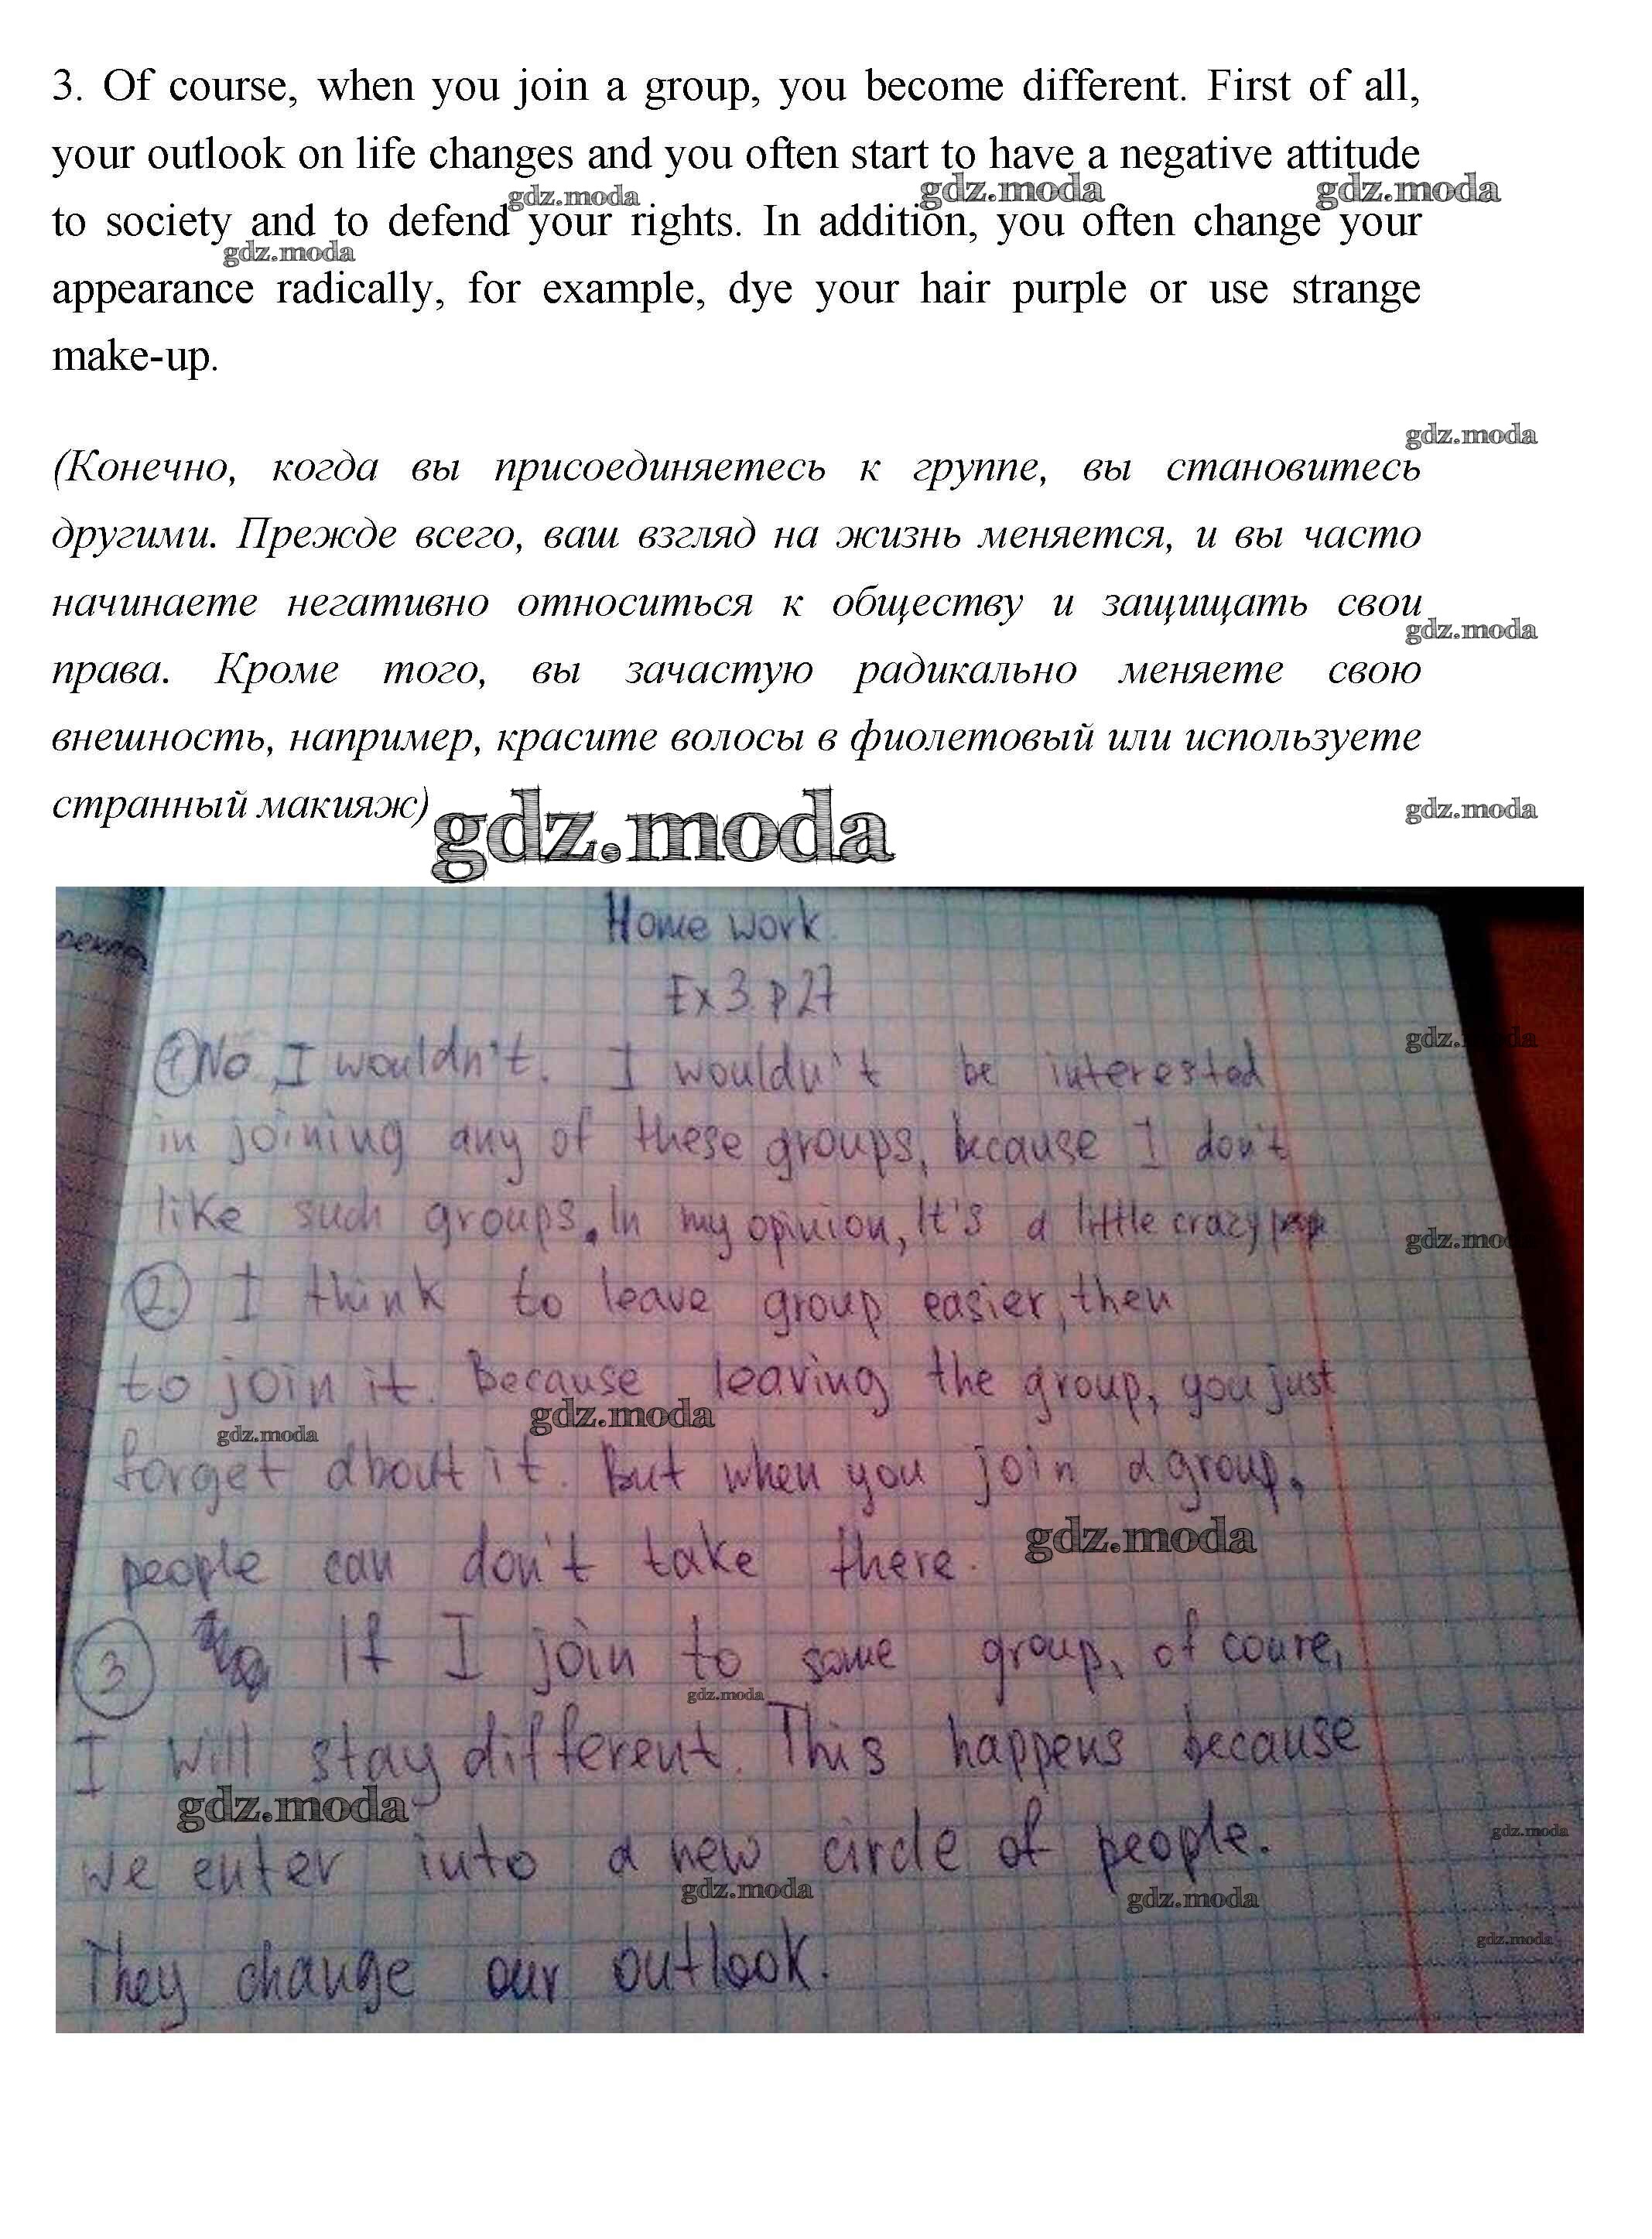 3. Of course, when you join a group, you become different. First of all,
your outlook on life changes and you often start to have a negative attitude
to society and to defend your rights. In addition, you often change your
appearance radically, for example, dye your hair purple or use strange
make-up.
(Конечно, когда вы присоединяетесь к группе, вы становитесь
другими. Прежде всего, ваш взгляд на жизнь меняется, и вы часто
начинаете негативно относиться к обществу и защищать свои
права. Кроме того, вы зачастую радикально меняете свою
внешность, например, красите волосы в фиолетовый или используете
странный макияж)
gdz.moda
Home work.
Ex 3. p 27
① No, I wouldn't. I wouldn't be interested
in joining any of these groups, because I don't
like such groups. In my opinion, It's a little crazy
②. I think to leave group easier, then
to join it. Because leaving the group, you just
forget about it. But when you join a group,
people can don't take there.
③ If I join to some group, of coure,
I will stay different. This happens because
we enter into a new circle of people.
They change our outlook.